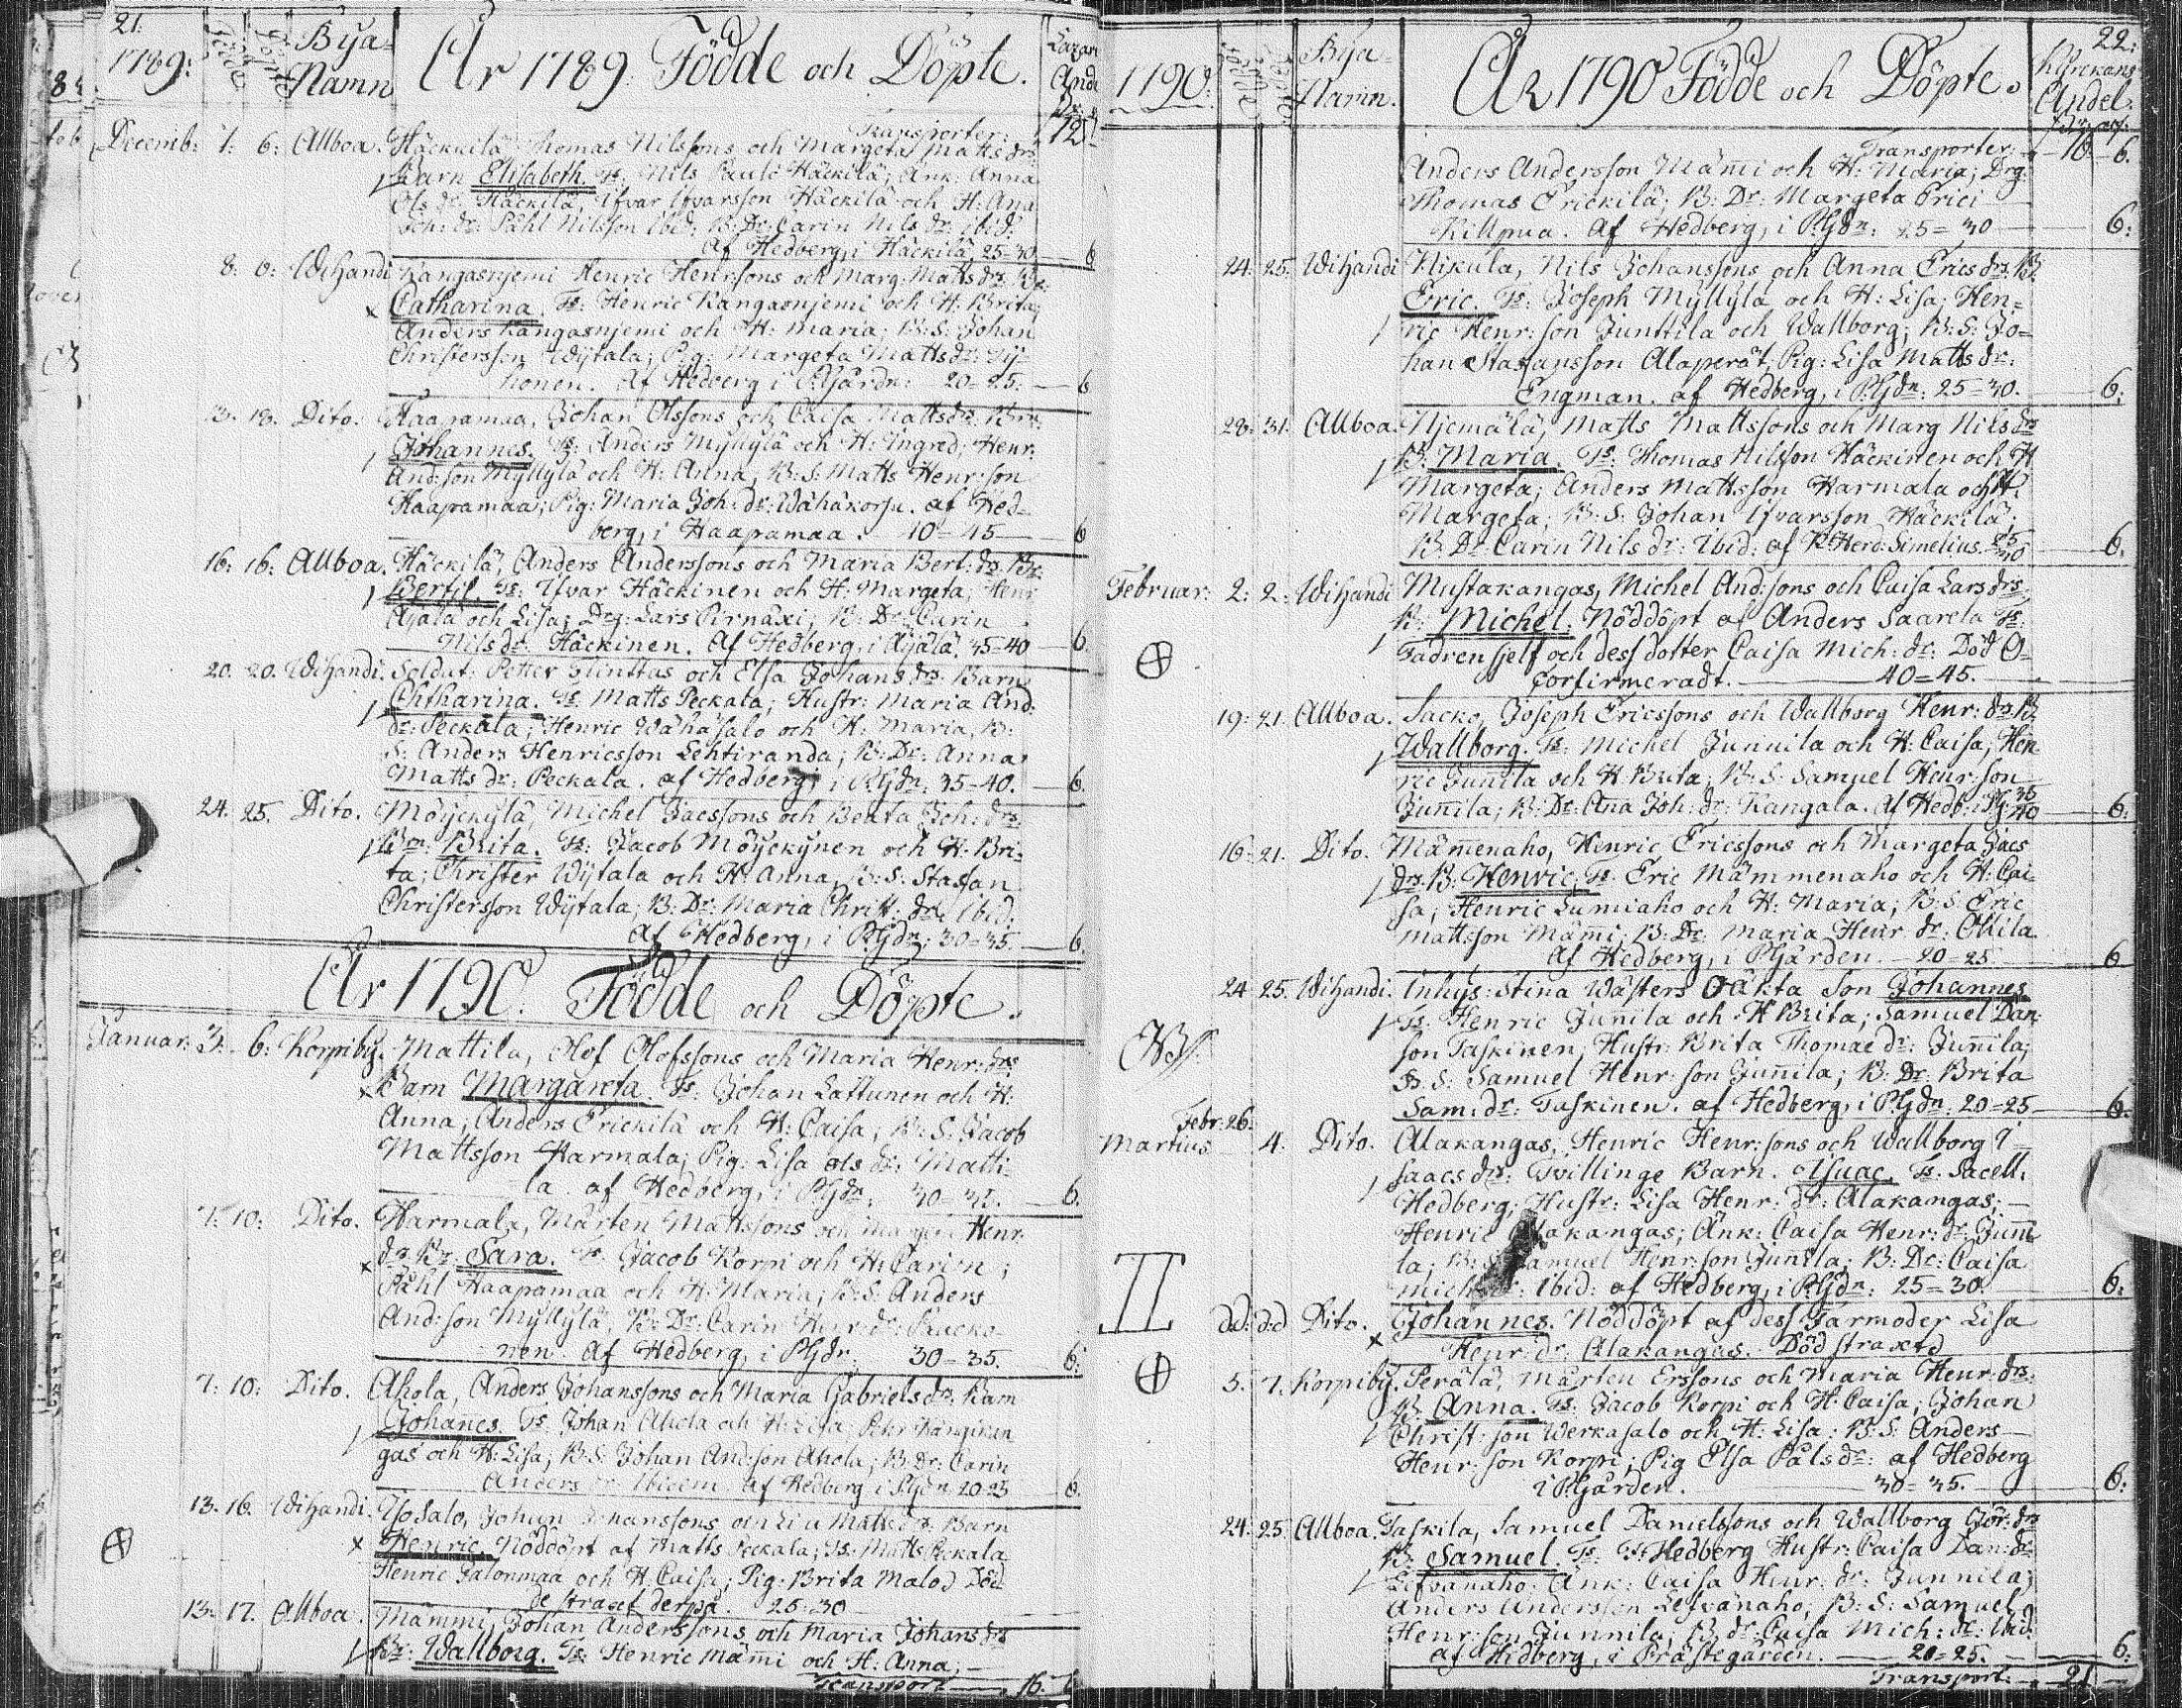 21.
1789:
Födde
Döpte
Bya-
Namn
År 1789. Födde och Döpte.
Transporter:
Decemb: 7: 6: Allboa. Häckilä Thomas Nilssons och Margeta Matts drs
Barn Elisabeth. Ts. Nils Pauli Häckilä; Änk: Anna
Ols dr. Häckilä, Ifvar Ifvarsson Häckilä och H: Ana
Joh: dr: Påhl Nilsson Ibid; B: Dr: Carin Nils dr: ibid:
af Hedberg, i Häckilä, 25-30. 6
8: 8: Wihandi Kangasnjemi Henric Henr:sons och Marg: Matts drs: Br:
Catharina. Ts: Henric Kangasnjemi och H: Brita;
Anders Kangasnjemi och H: Maria; B: S: Johan
Christersson Wijtala; Pig: Margeta Matts dr:
honen. Af Hedberg i P.Gårdn: 20-25. 6
13. 13. Dito. Haapamaa, Johan Olssons och Caisa Matts drs.
Johannes. Ts: Anders Myllylä och H: Ingred; Henr.
And:son Myllylä och H: Anna, B: S: Matts Henr:son
Haapamaa; Pig: Maria Joh: dr: Wähäkorju. af Hed-
berg, i Haapamaa. 10=45 6
16: 16: Allboa. Häckilä, Anders Anderssons och Maria Bert: drs Br:
Bertil. Ts. Ifvar Häckinen och H: Margeta; Henr
Äijälä och Lisa; Drg: Lars Pirnäxi; B: Dr: Carin
Nils dr: Häckinen. Af Hedberg, i Äijälä. 35-40 6.
20. 20. Wihandi. Soldat: Petter Flinttas och Elsa Johans drs. Barn
Chtharina. Ts. Matts Peckala; Hustr: Maria And:
dr: Peckala; Henric Wähäsalo och H: Maria, B:
S: Anders Henricsson Lehtiranda; B: Dr: Anna
Matts dr: Peckala. af Hedberg i P.Gdn: 35-40. 6.
24. 25. Dito. Möyckylä, Michel Jacssons och Beata Joh: drs
Brn: Brita. Ts: Jacob Möyckynen och H: Bri-
ta; Christer Wijtala och H: Anna, B: S: Staffan
Christersson Wijtala; B: Dr: Maria Christ: dr. Ibid:
Af Hedberg, i P.Gdn: 30=35. 6.
År 1790. Födde och Döpte.
Januar: 3. 6: Korpiby. Mattila, Olof Olofssons och Maria Henr: drs
Barn Margareta. Ts: Johan Lattunen och H:
Anna, Anders Erickilä och H: Caisa; B: S: Jacob
Mattsson Karmala; Pig: Lisa Ols dr: Matti-
la. af Hedberg, i P.Gdn: 30-35. 6.
7: 10: Dito. Harmala, Mårten Mattssons och Henr.
drs Br: Sara. Ts Jacob Korpi och H: Carin;
Påhl Haapamaa och H: Maria; B: S: Anders
And:son Myllylä, B: Dr: Carin Henr: dr:
nen. Af Hedberg, i P.Gdn 30-35. 6:
7: 10: Dito. Ahola, Anders Johanssons och Maria Gabriels drs. Barn
Johanes. Ts: Johan Ahola och H: Lisa
gas och H: Lisa; B: S: Johan And:son Ahola; B: Dr: Carin
Anders dr Ibidem af Hedberg i P.Gdn 20 25 6.
13. 16. Wihandi. Isosalo, Johan Johanssons och Matts drs: Barn
Henric. Nöddöpt af Matts Peckala; Ts: Matts Peckala
Henric Jalonmaa och H: Caisa; Pig: Brita Död
de straxt derpå. 25=30
13. 17. Allboa. Mämmi, Johan Anderssons och Maria Johans drs
Br: Wallborg. Ts: Henric Mämi och H: Anna;
Transport 16. 6
22.
1790.
Födde
Döpte
Bya-
Namn.
År 1790 Födde och Döpte.
Kyrckans
Andel.
Transporter: 16. 6.
Anders Andersson Mämi och H: Maria; Drg:
Thomas Erickilä; B: Dr: Margeta Erici
Killpua. Af Hedberg, i P.Gdn: 25=30 6:
24: 25. Wihandi Nikula, Nils Johanssons och Anna Erics drs: B:
Eric. Ts: Joseph Myllylä och H: Lisa; Hen-
ric Henr:son Junttila och Wallborg; B: S: Jo-
han Staffansson Alaperät, Pig: Lisa Matts dr:
Engman. af Hedberg, i P.Gdn: 25=30. 6:
28: 31: Allboa. Njemälä, Matts Mattssons och Marg Nils drs
B: Maria. Ts: Thomas Nilsson Häckinen och H
Margeta; Anders Mattsson Karmala och H:
Margeta; B: S: Johan Ifvarsson Häckilä;
B: Dr: Carin Nils dr: Ibid: af K: Herd: Simelius. 35/40 6.
Februar: 2: 2: Wihandi Mustakangas, Michel And:sons och Caisa Lars drs
B: Michel. Nöddöpt af Anders Saarela Ts:
Fadren sjelf och dess dotter Caisa Mich: dr: Död O-
confirmeradt. 40=45.
19: 21. Allboa. Sacko, Joseph Ericssons och Wallborg Henr: drs B:
Wallborg. Ts: Michel Junnila och H: Caisa; Hen
ric Juñila och H Brita; B: S: Samuel Henr:son
Juñila; B: Dr: Ana Joh: dr: Kangala. Af Hedb: i P.G: 35/40 6:
16: 21. Dito. Mämmenaho, Henric Ericssons och Margeta Jacs
drs B: Henric. Ts. Eric Mämmenaho och H: Cai-
sa; Henric Lumiaho och H: Maria; B: S: Eric
Mattsson Mämi; B: Dr: Maria Henr dr: Ollila
Af Hedberg, i P.Gården. 20=25. 6
24 25. Wihandi. Inhys: Stina Wästers Oäkta Son Johannes
Ts. Henric Juñila och H Brita; Samuel Dan:
son Taskinen; Hustr: Brita Thomae dr: Juñila;
B: S: Samuel Henr:son Juñila; B: Dr: Brita
Sam: dr: Taskinen. af Hedberg, i P.Gdn: 20=25 6:
Febr: 26.
Martius 4. Dito. Alakangas, Henric Henr:sons och Wallborg I
saacs drs: Tvillinge Barn. Isaac. Ts. Sacell:
Hedberg; Hustr: Lisa Henr: dr: Alakangas;
Henric Alakangas; Änk: Caisa Henr: dr: Juñi
la; B: S: Samuel Henr:son Juñila; B: Dr: Caisa
Mich: dr: Ibid: af Hedberg, i P.Gdn: 25=30. 6:
II dd: d:d Dito. Johannes. Nöddöpt af dess Farmoder Lisa
Henr: dr: Alakangas. Död straxt
5. 7. Korpiby. Perälä, Mårten Erssons och Maria Henr: drs
B: Anna. Ts: Jacob Korpi och H: Caisa; Johan
Christ:son Werkasalo och H: Lisa: B: S: Anders
Henr:son Korpi; Pig Elsa Påls dr: af Hedberg
i P.Gården. 30=35. 6:
24: 25 Allboa. Taskila, Samuel Danielssons och Wallborg Gör: drs
B: Samuel. Ts: Hedberg Hustr: Caisa Dan: dr
Leivänaho. Änk: Caisa Henr: dr: Junnila;
Anders Andersson Leivänaho; B: S: Samuel
Henr:son Junnila; B dr: Caisa Mich: dr: Ibid:
af Hedberg, i Prästegården. 20=25. 6:
Transport. 21.